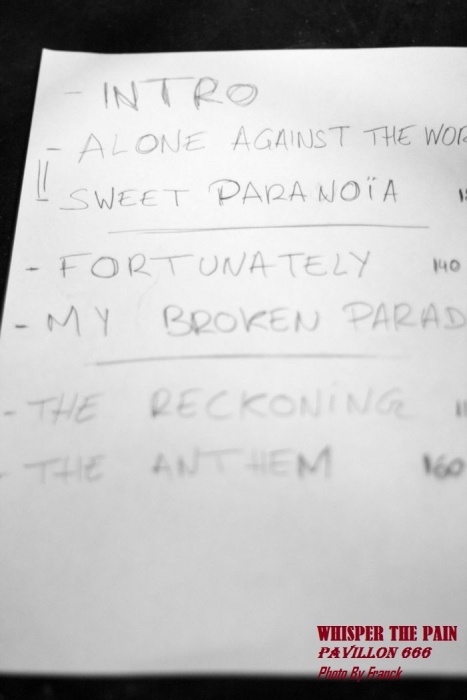 - INTRO
- ALONE AGAINST THE WOR
SWEET PARANOÏA
- FORTUNATELY 140
- MY BROKEN PARAD
- THE RECKONING
- THE ANTHEM 160
WHISPER THE PAIN
PAVILLON 666
Photo By Franck